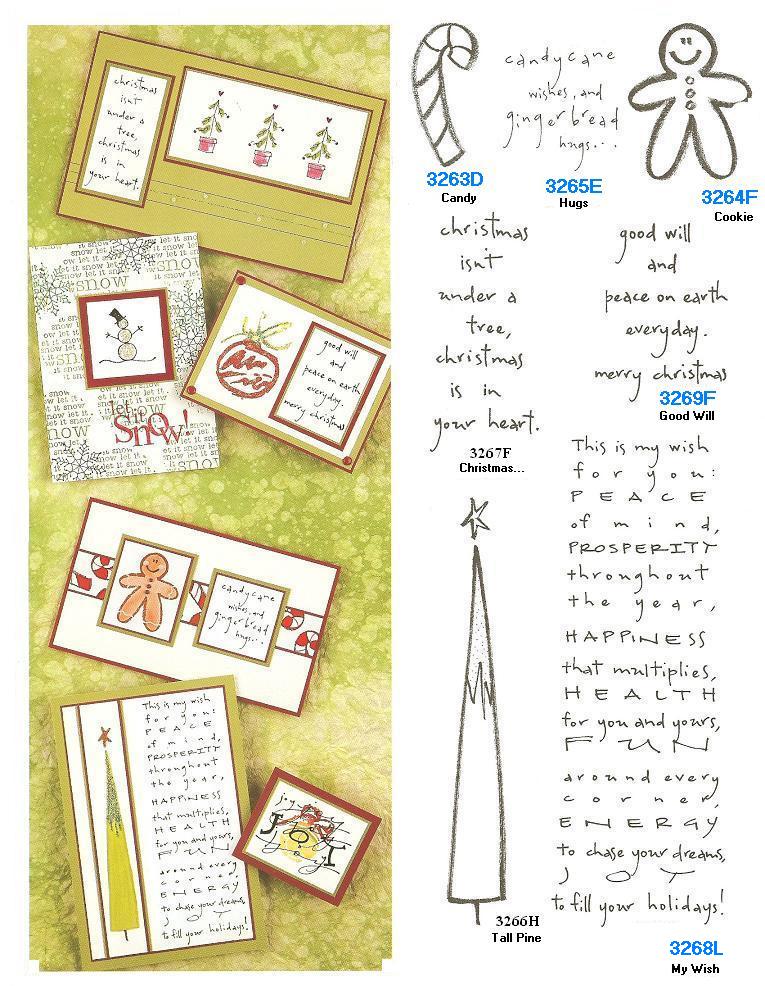 christmas
isn't
under a
tree,
christmas
is in
your heart.
let it snow
snow
let it
Snow!
good will
and
peace on earth
everyday.
merry christmas
candy cane
wishes, and
gingerbread
hugs...
This is my wish
for you:
PEACE
of mind,
PROSPERITY
throughout
the year,
HAPPINESS
that multiplies,
HEALTH
for you and yours,
FUN
around every
corner,
ENERGY
to chase your dreams,
JOY
to fill your holidays!
joy
JOY
joy
candy cane
wishes, and
gingerbread
hugs...
3263D
Candy
3265E
Hugs
3264F
Cookie
christmas
isn't
under a
tree,
christmas
is in
your heart.
3267F
Christmas...
good will
and
peace on earth
everyday.
merry christmas
3269F
Good Will
This is my wish
for you:
PEACE
of mind,
PROSPERITY
throughout
the year,
HAPPINESS
that multiplies,
HEALTH
for you and yours,
FUN
around every
corner,
ENERGY
to chase your dreams,
JOY
to fill your holidays!
3266H
Tall Pine
3268L
My Wish